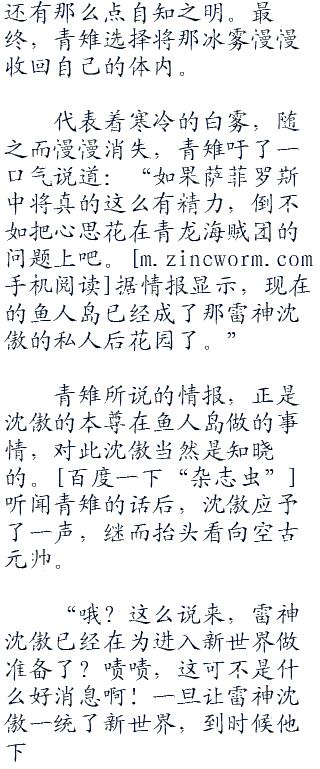 还有那么点自知之明。最
终，青雉选择将那冰雾漫漫
收回自己的体内。
代表着寒冷的白雾，随
之而漫漫消失，青雉吁了一
口气说道：“如果萨菲罗斯
中将真的这么有精力，倒不
如把心思花在青龙海贼团的
问题上吧。[m.zincworm.com
手机阅读]据情报显示，现在
的鱼人岛已经成了那雷神沈
傲的私人后花园了。”
青雉所说的情报，正是
沈傲的本尊在鱼人岛做的事
情，对此沈傲当然是知晓
的。[百度一下“杂志虫”]
听闻青雉的话后，沈傲应予
了一声，继而抬头看向空古
元帅。
“哦？这么说来，雷神
沈傲已经在为进入新世界做
准备了？啧啧，这可不是什
么好消息啊！一旦让雷神沈
傲一统了新世界，到时候他
下